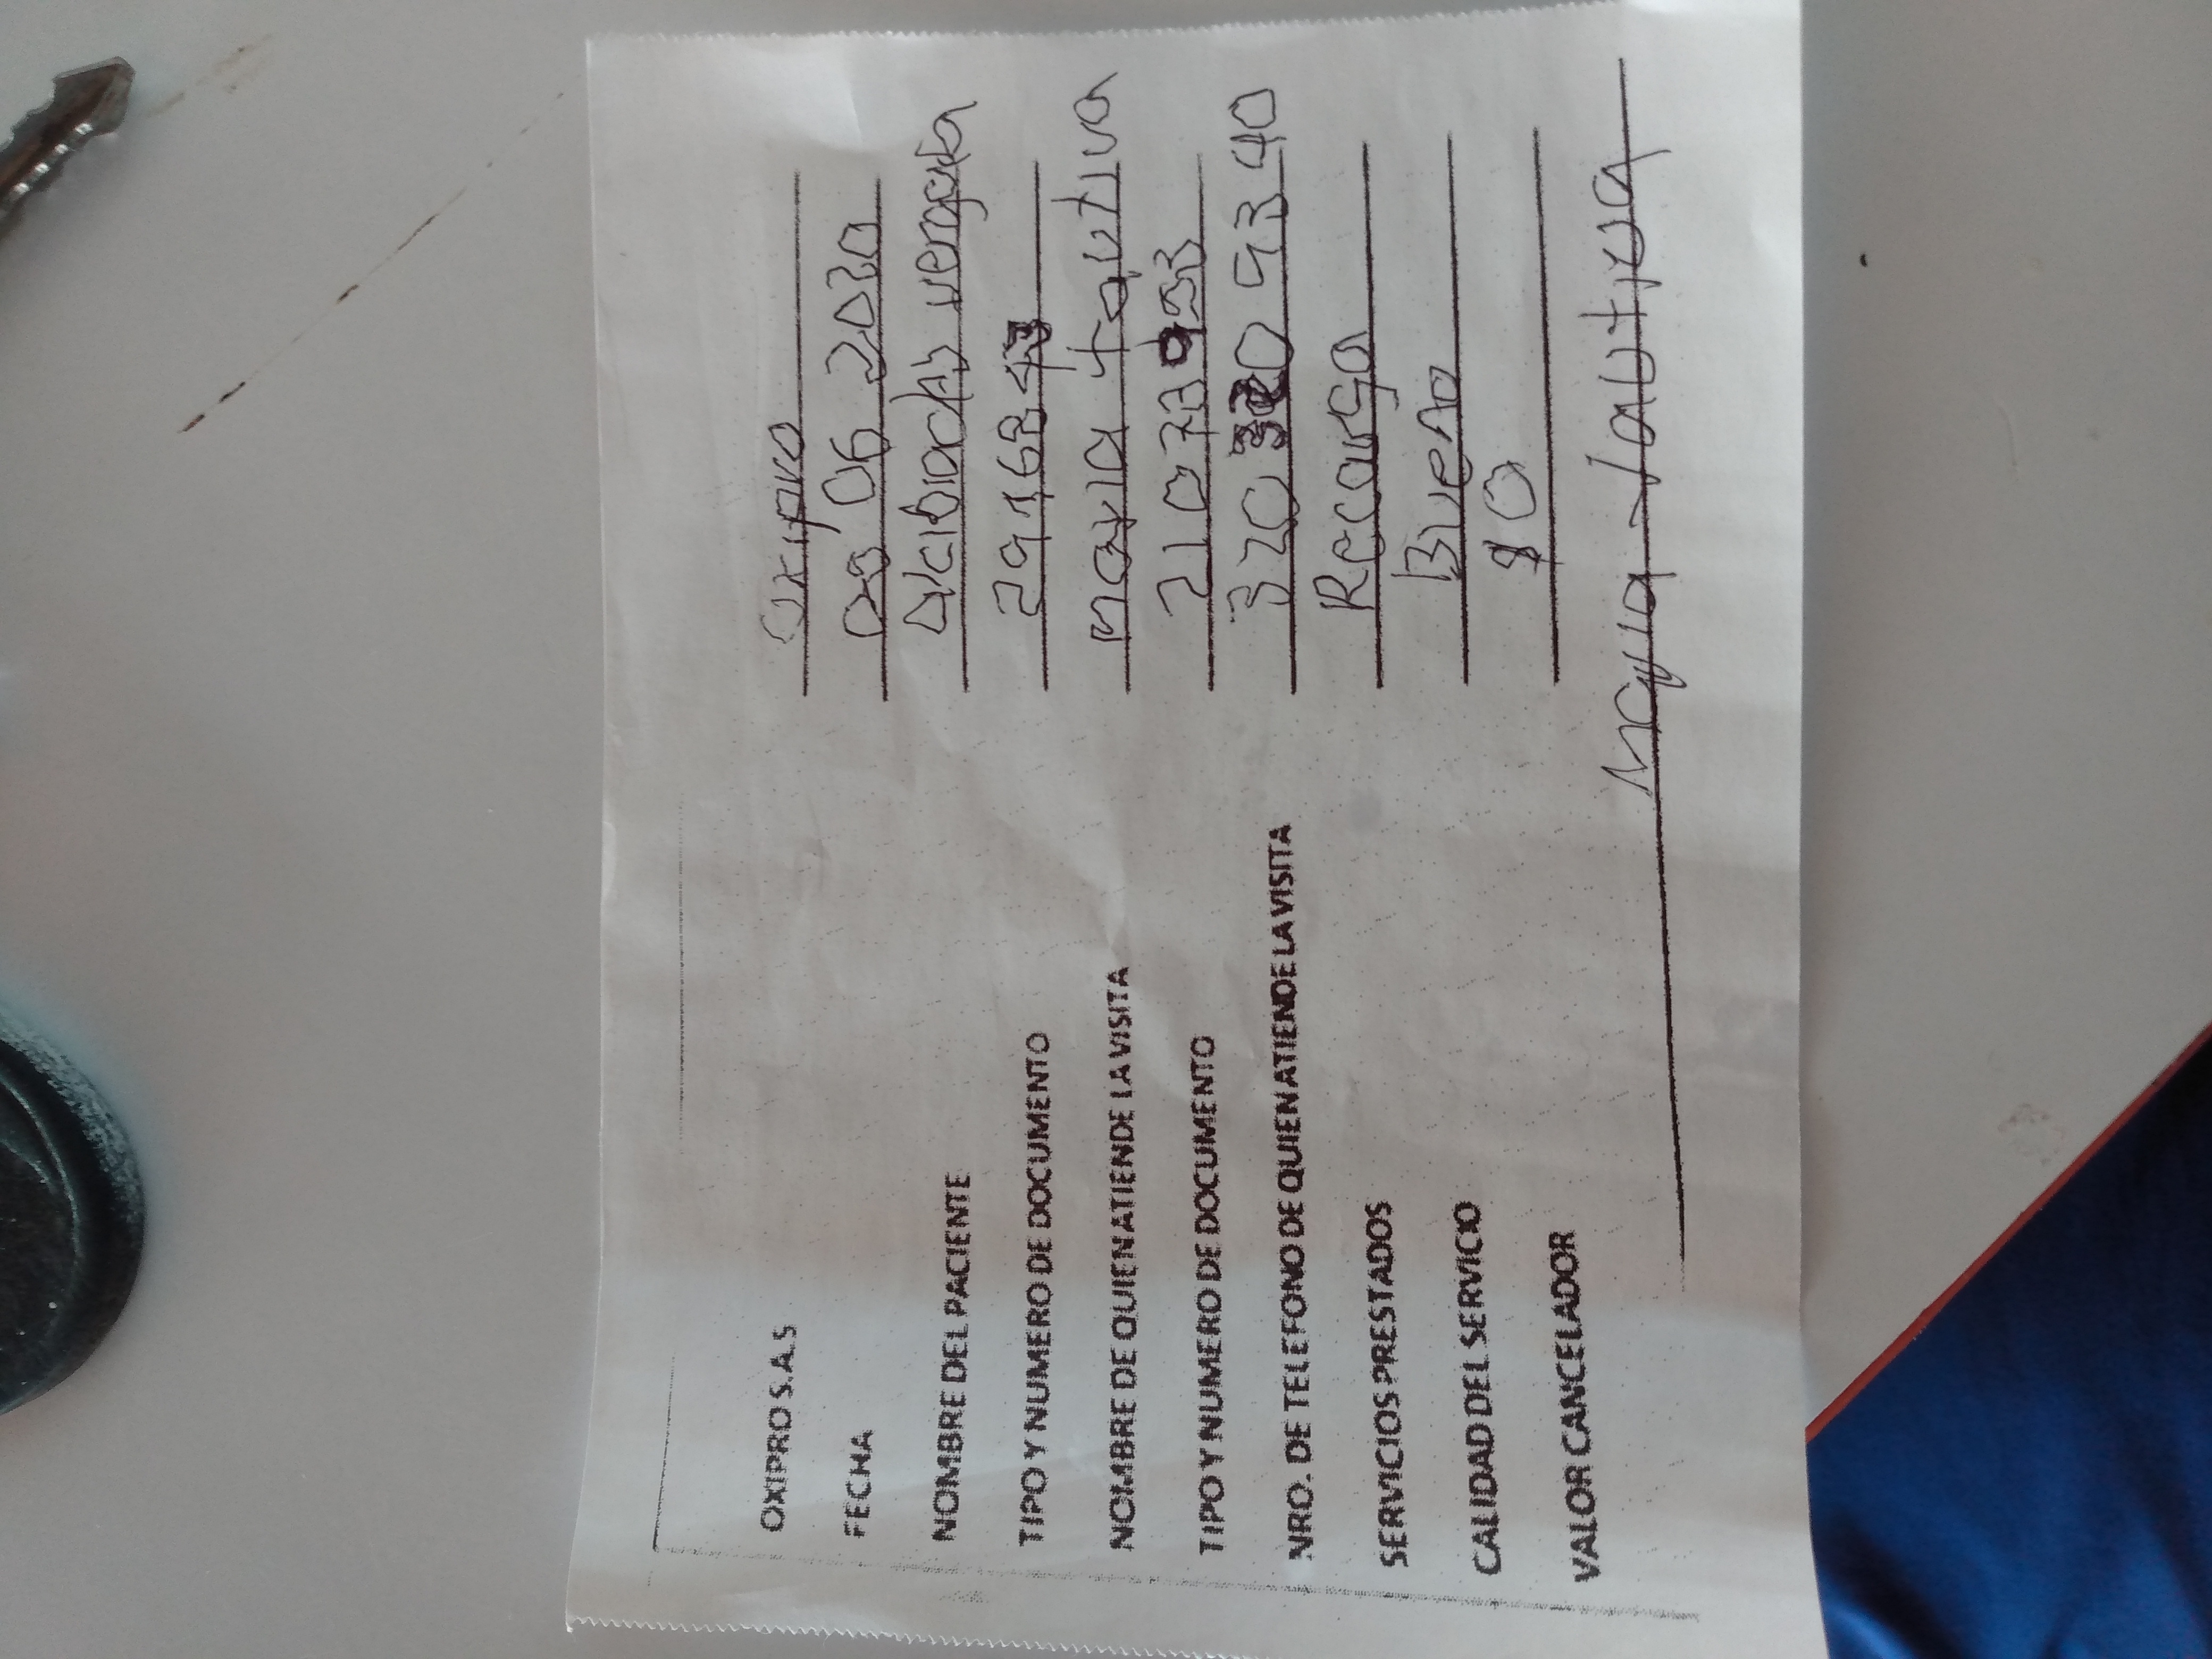 OXIPRO S.A.S Oxipro
FECHA 03 06 2020
NOMBRE DEL PACIENTE Alcibiades vergara
TIPO Y NUMERO DE DOCUMENTO
NOMBRE DE QUIEN ATIENDE LA VISITA maria fautiva
TIPO Y NUMERO DE DOCUMENTO
NRO. DE TELEFONO DE QUIEN ATIENDE LA VISITA
SERVICIOS PRESTADOS Recarga
CALIDAD DEL SERVICIO Bueno
VALOR CANCELADOR $0
Maria fautiva